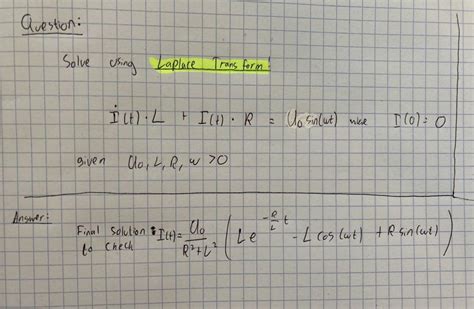 Question:
Solve using Laplace Transform!
İ(t) · L + I(t) · R = U₀ sin(ωt) I(0) = 0
given U₀, L, R, ω > 0
Answer:
Final solution: I(t) = U₀/(R² + L²) (L e^(-R/L t) - L cos(ωt) + R sin(ωt))
to check